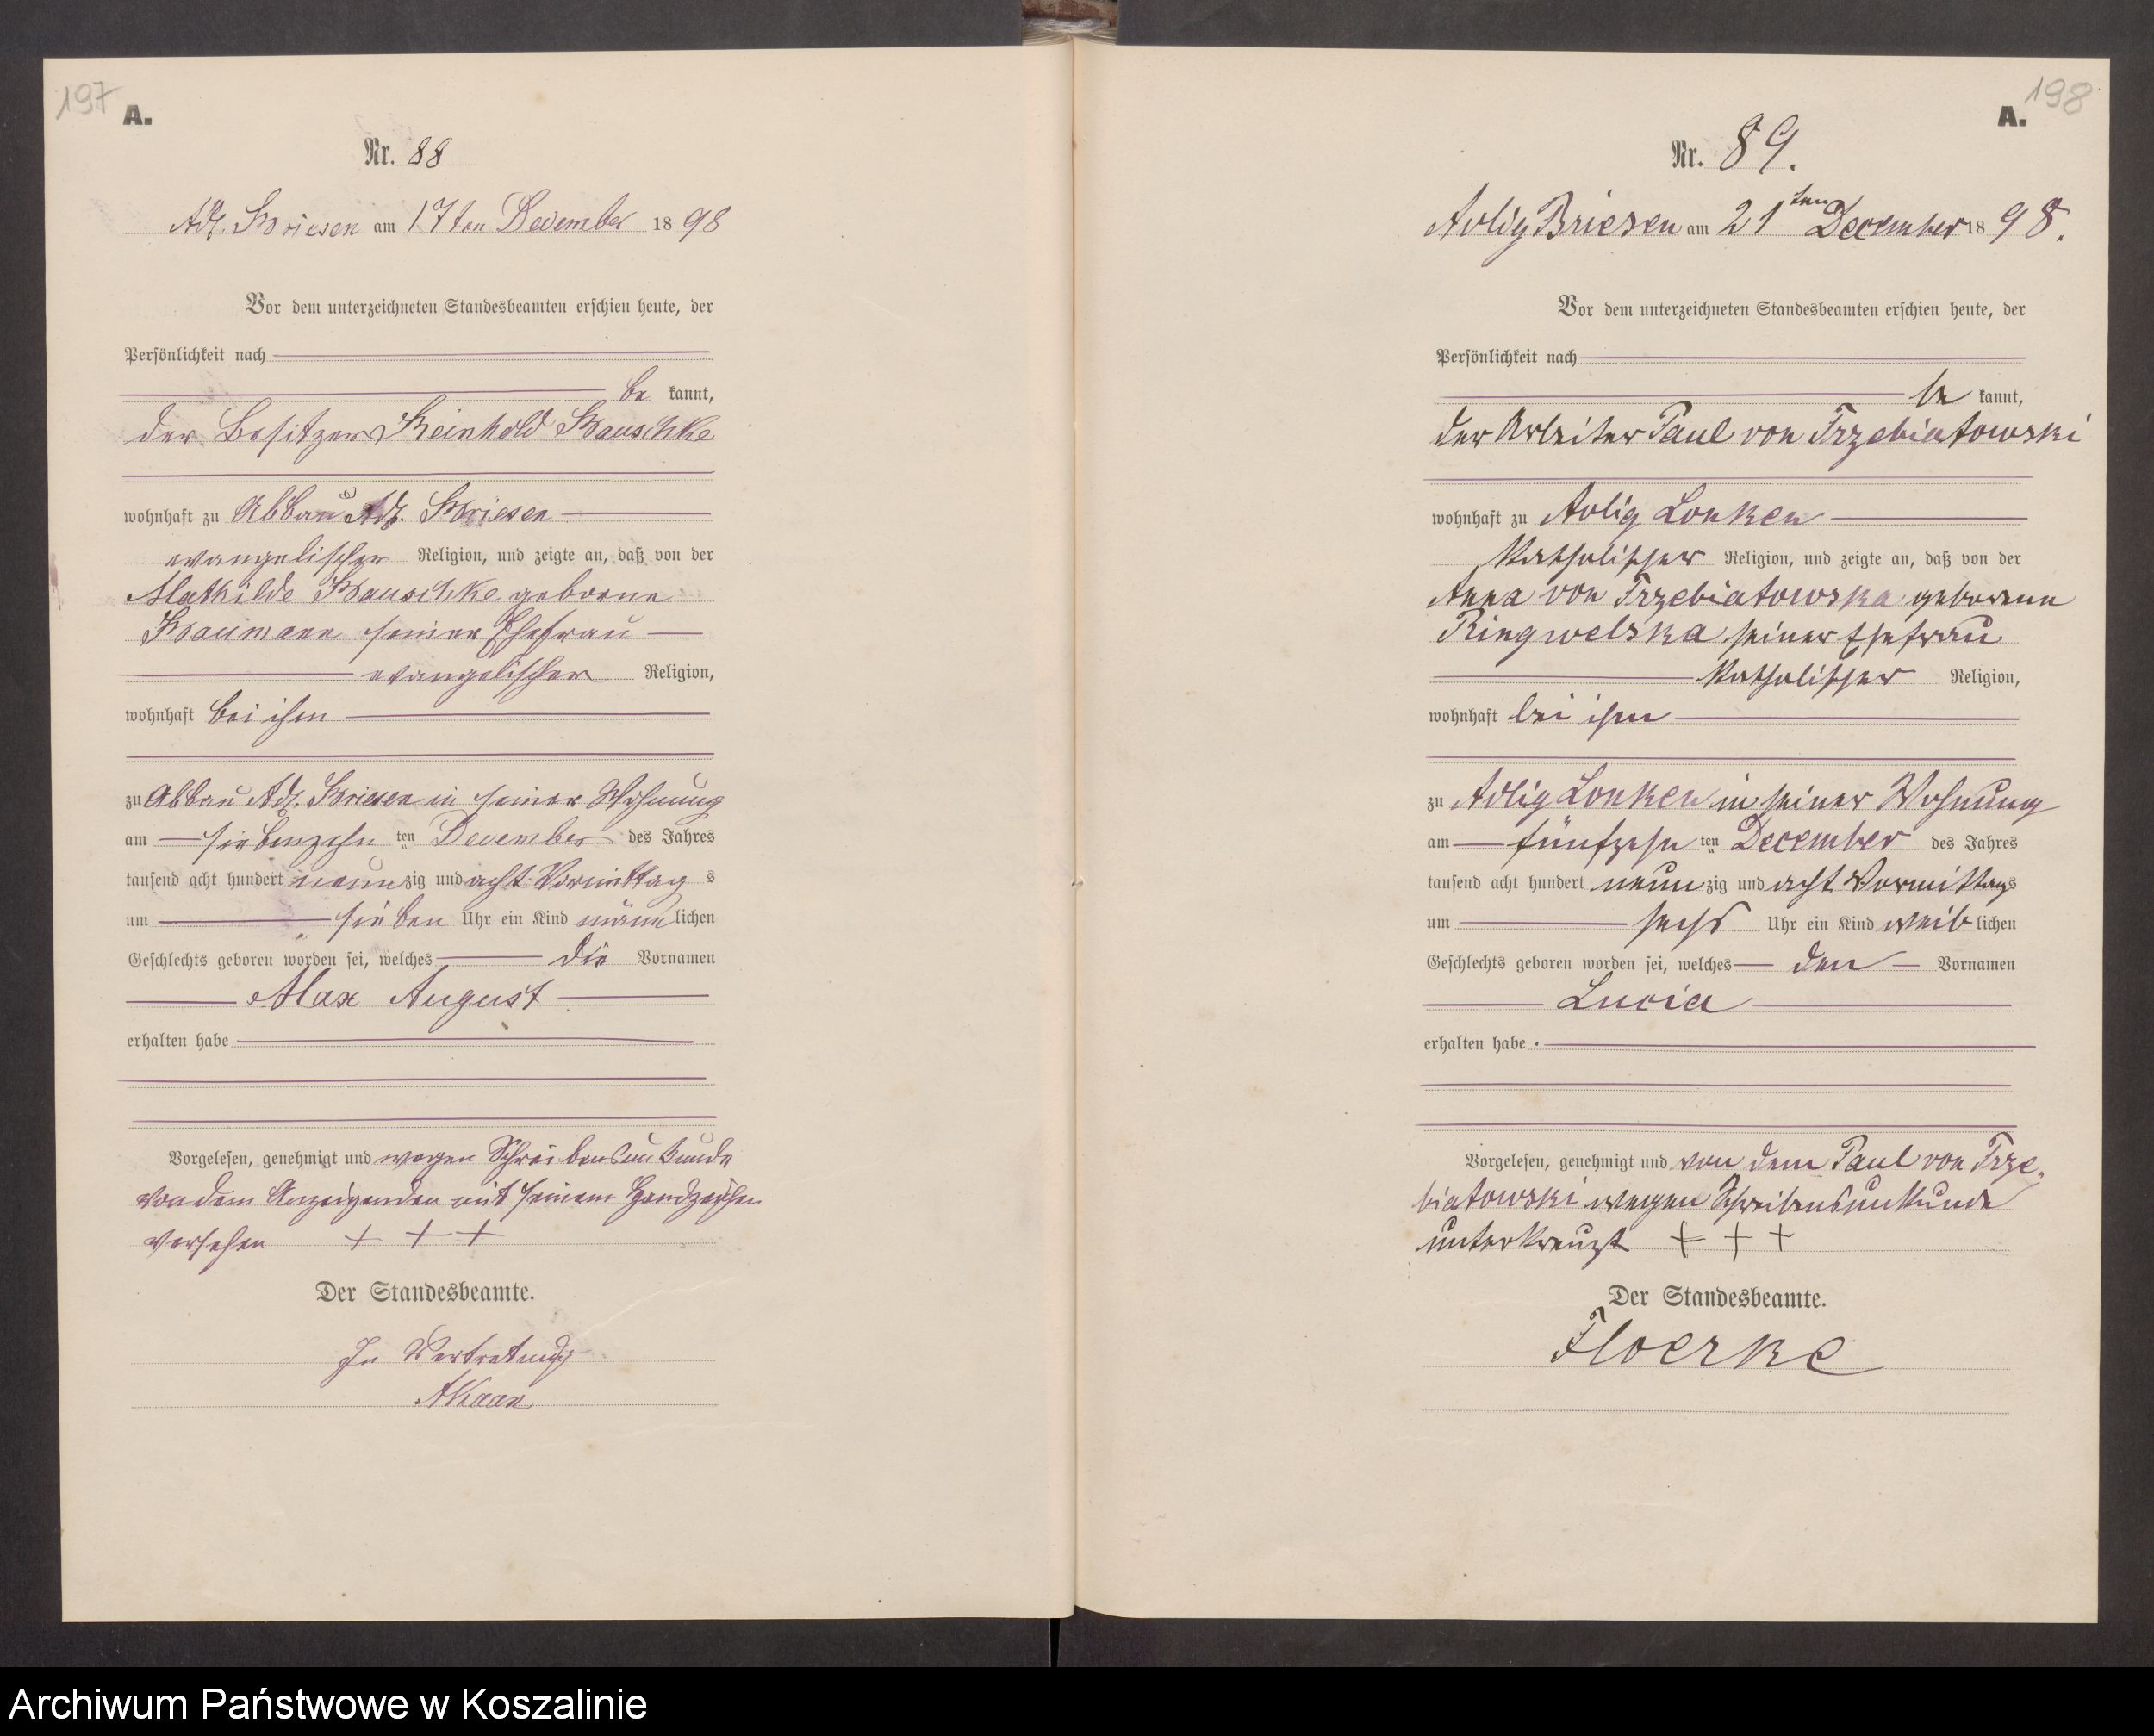 197
A.
Nr. 88
Adl. Briesen am 17ten December 1898
Vor dem unterzeichneten Standesbeamten erschien heute, der
Persönlichkeit nach
be kannt,
der Besitzer Reinhold Bauschke
wohnhaft zu Abbau Adl. Briesen
evangelischer Religion, und zeigte an, daß von der
Mathilde Bauschke geborene
Baumann seiner Ehefrau
evangelischer Religion,
wohnhaft bei ihm
zu Abbau Adl. Briesen in seiner Wohnung
am siebenzehn ten December des Jahres
tausend acht hundert neunzig und acht Vormittag s
um sieben Uhr ein Kind männlichen
Geschlechts geboren worden sei, welches die Vornamen
Max August
erhalten habe
Vorgelesen, genehmigt und wegen Schreibensunkunde
von dem Anzeigenden mit seinem Handzeichen
versehen + + +
Der Standesbeamte.
In Vertretung
198
A.
Nr. 89.
Adlig Briesen am 21ten December 1898.
Vor dem unterzeichneten Standesbeamten erschien heute, der
Persönlichkeit nach
be kannt,
der Arbeiter Paul von Trzebiatowski
wohnhaft zu Adlig Lonken
katholischer Religion, und zeigte an, daß von der
Anna von Trzebiatowska geborenen
Ringwelska seiner Ehefrau
katholischer Religion,
wohnhaft bei ihm
zu Adlig Lonken in seiner Wohnung
am fünfzehn ten December des Jahres
tausend acht hundert neunzig und acht Vormittags
um sechs Uhr ein Kind weiblichen
Geschlechts geboren worden sei, welches den Vornamen
Lucia
erhalten habe.
Vorgelesen, genehmigt und von dem Paul von Trze-
biatowski wegen Schreibensunkunde
unterkreuzt + + +
Der Standesbeamte.
Floerke
Archiwum Państwowe w Koszalinie